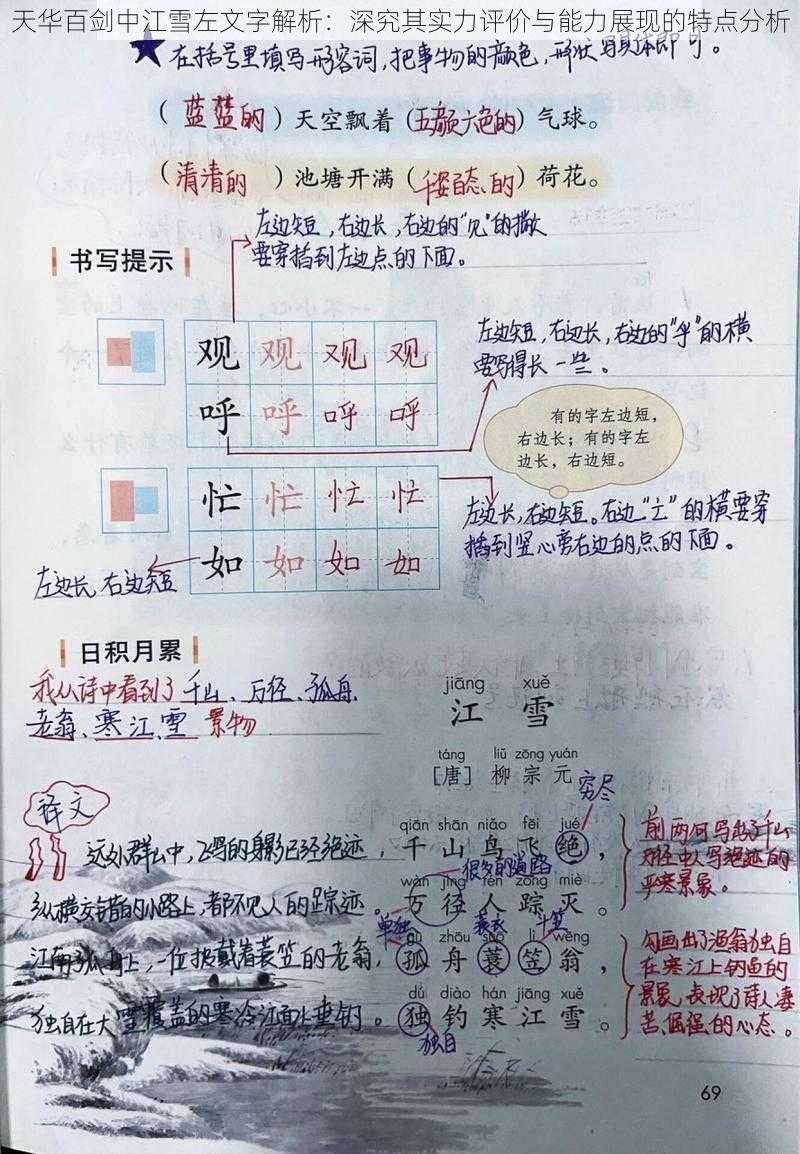 天华百剑中江雪左文字解析：深究其实力评价与能力展现的特点分析
在括号里填写形容词，把事物的颜色，形状写具体即可。
（蓝蓝的）天空飘着（五颜六色的）气球。
（清清的）池塘开满（千姿百态的）荷花。
左边短，右边长，右边的“见”的撇
要穿插到左边点的下面。
书写提示
左边短，右边长，右边的“乎”的横
要写得长一些。
观 观 观 观
呼 呼 呼 呼
有的字左边短，
右边长；有的字左
边长，右边短。
忙 忙 忙 忙
如 如 如 如
左边长，右边短。右边“亡”的横要穿
插到竖心旁右边的点的下面。
左边长，右边短
日积月累
我从诗中看到了千山、万径、孤舟、
老翁、寒江、雪 景物
jiāng xuě
江 雪
táng liǔ zōng yuán
［唐］柳宗元
穷尽
译文
qiān shān niǎo fēi jué
千山鸟飞绝，
很多的道路
wàn jìng rén zōng miè
万径人踪灭。
单独 蓑衣 斗笠
gū zhōu suō lì wēng
孤舟蓑笠翁，
dú diào hán jiāng xuě
独钓寒江雪。
独自
远处群山中，飞鸟的身影已经绝迹，
纵横交错的小路上，都不见人的踪迹。
江南孤舟上，一位披戴着蓑笠的老翁，
独自在大雪覆盖的寒冷江面上垂钓。
前两句写出了千山
万径中人鸟绝迹的
严寒景象。
勾画出了渔翁独自
在寒江上钓鱼的
景象，表现了诗人凄
苦、倔强的心态。
69